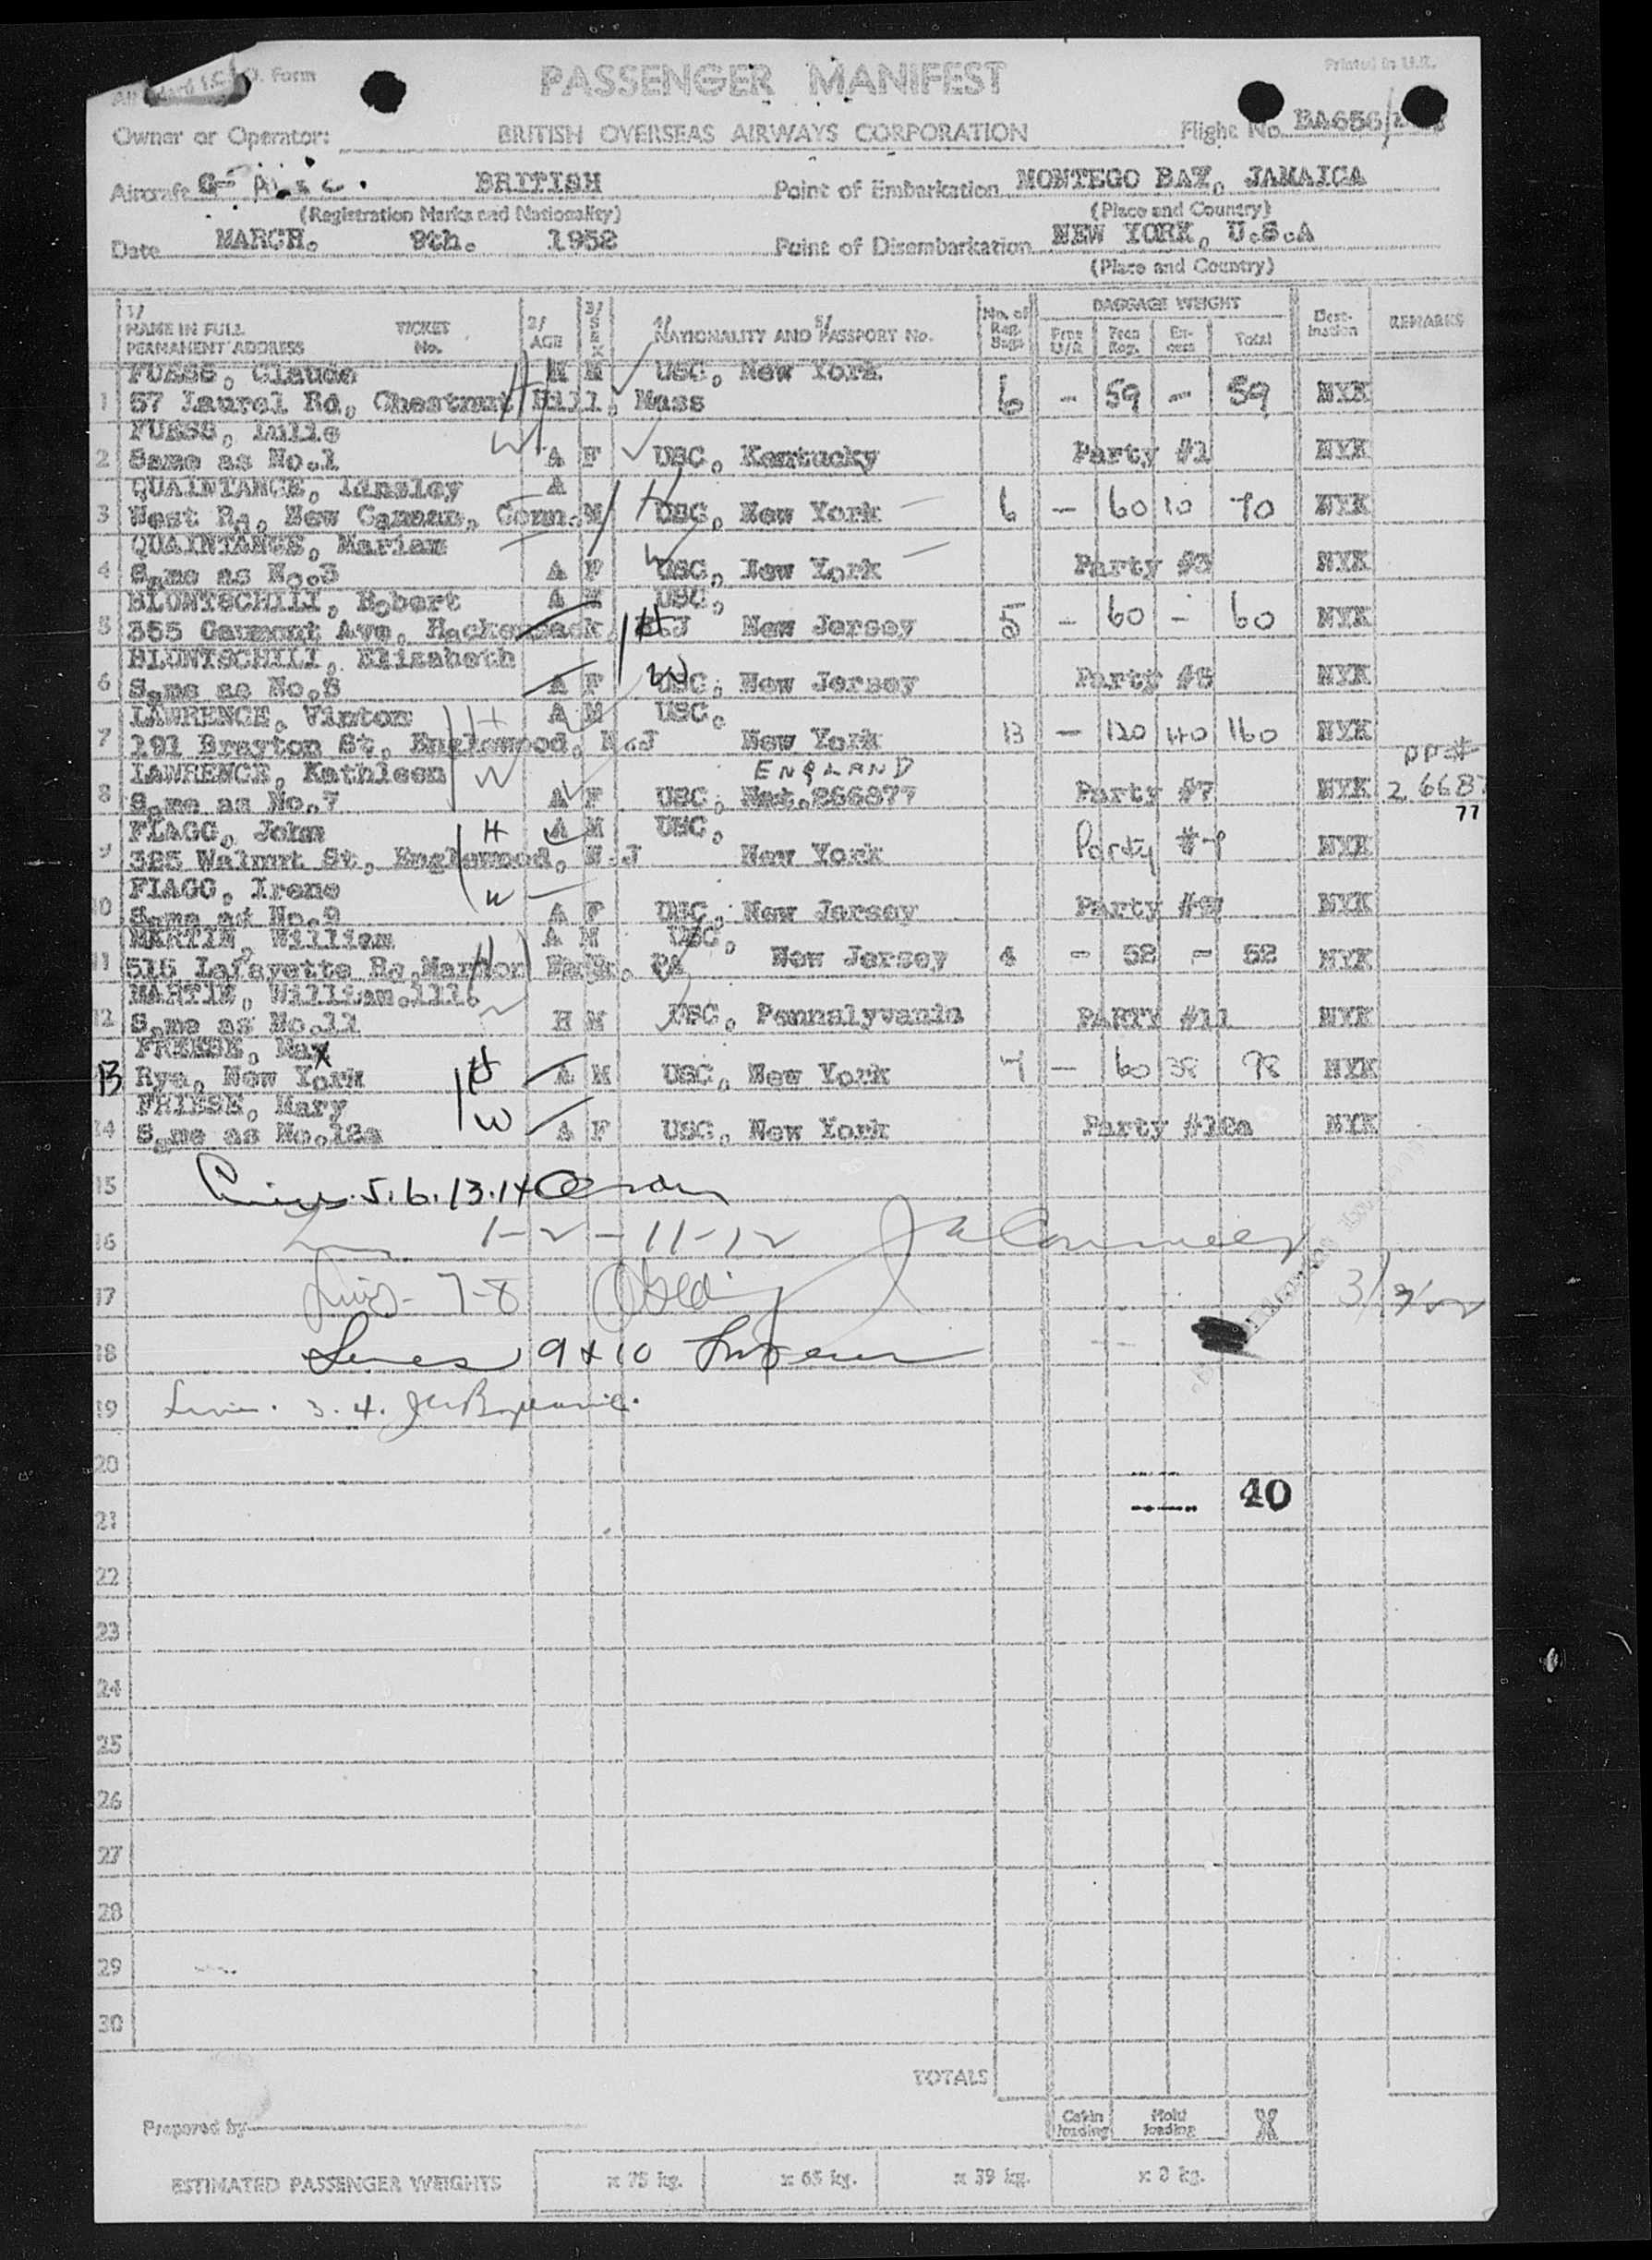 PASSENGER MANIFEST
Printed in U.K.
Form
Owner or Operator: BRITISH OVERSEAS AIRWAYS CORPORATION Flight No. BA656/
Aircraft G- BRITISH Point of Embarkation MONTEGO BAY, JAMAICA
(Registration Marks and Nationality) (Place and Country)
Date MARCH. 9th. 1952 Point of Disembarkation NEW YORK, U.S.A
(Place and Country)
1/ NAME IN FULL PERMANENT ADDRESS TICKET No. 2/ AGE 3/ SEX 4/ NATIONALITY AND 5/ PASSPORT No. No. of Reg. Bags BAGGAGE WEIGHT Free U/R Free Reg. Ex-cess Total Dest-ination REMARKS
FUESS, Claude M M USC, New York
1 57 Laurel Rd, Chestnut Hill, Mass 6 - 59 - 59 NYK
FUESS, Lulie
2 Same as No.1 W A F USC, Kentucky Party #1 NYK
QUAINTANCE, Kinsley A
3 West Rd, New Canaan, Conn. M H USC, New York 6 - 60 10 70 NYK
QUAINTANCE, Marian
4 Same as No.3 A F W USC, New York Party #3 NYK
BLUNTSCHILI, Robert A M USC,
5 355 Gaumont Ave, Hackensack N.J H New Jersey 5 - 60 - 60 NYK
BLUNTSCHILI, Elizabeth
6 Same as No.5 A F W USC, New Jersey Party #5 NYK
LAWRENCE, Vinton H A M USC,
7 191 Brayton St, Englewood, N.J New York 13 - 120 40 160 NYK
LAWRENCE, Kathleen W ENGLAND PP#
8 Same as No.7 A F USC, Nat.266877 Party #7 NYK 26687
77
FLAGG, John H A M USC,
9 325 Walnut St, Englewood, N.J New York Party #7 NYK
FLAGG, Irene W
10 Same as No.9 A F USC, New Jersey Party #9 NYK
MARTIN, William A M USC,
11 515 Lafayette Rd, Merion PA New Jersey 4 - 52 - 52 NYK
MARTIN, William.111.
12 Same as No.11 H M USC, Pennsalyvania PARTY #11 NYK
FREESE, Max
13 Rye, New York H A M USC, New York 7 - 60 38 98 NYK
FRIESE, Mary
14 Same as No.12a W A F USC, New York Party #12a NYK
15 5.6.13.14
16 1-2-11-12
17 7-8
18 Lines 9 + 10
19 3.4.
20
40
21
22
23
24
25
26
27
28
29
30
TOTALS
Prepared by Cabin loading Hold loading
ESTIMATED PASSENGER WEIGHTS x 75 kg. x 65 kg. x 39 kg. x 8 kg.